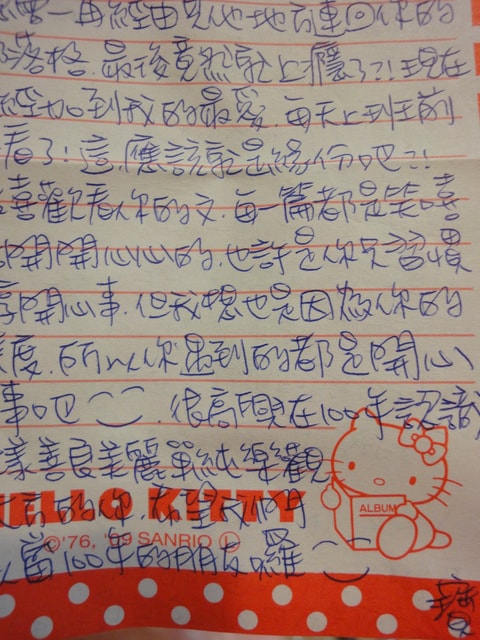 一再經由其他地方連回你的
落格.最後竟然就上癮了?!現在
經加到我的最愛.每天上班前
看了!這應該就是緣份吧?!
喜歡看你的文.每一篇都是笑嘻
開開心心的.也許是你只習慣
享開心事.但我想也是因為你的
度.所以你遇到的都是開心
事吧
很高興在100年認識
樣善良美麗單純樂觀
的你.希望我們
HELLO KITTY
ALBUM
©'76, '99 SANRIO
當100年的朋友囉
寶